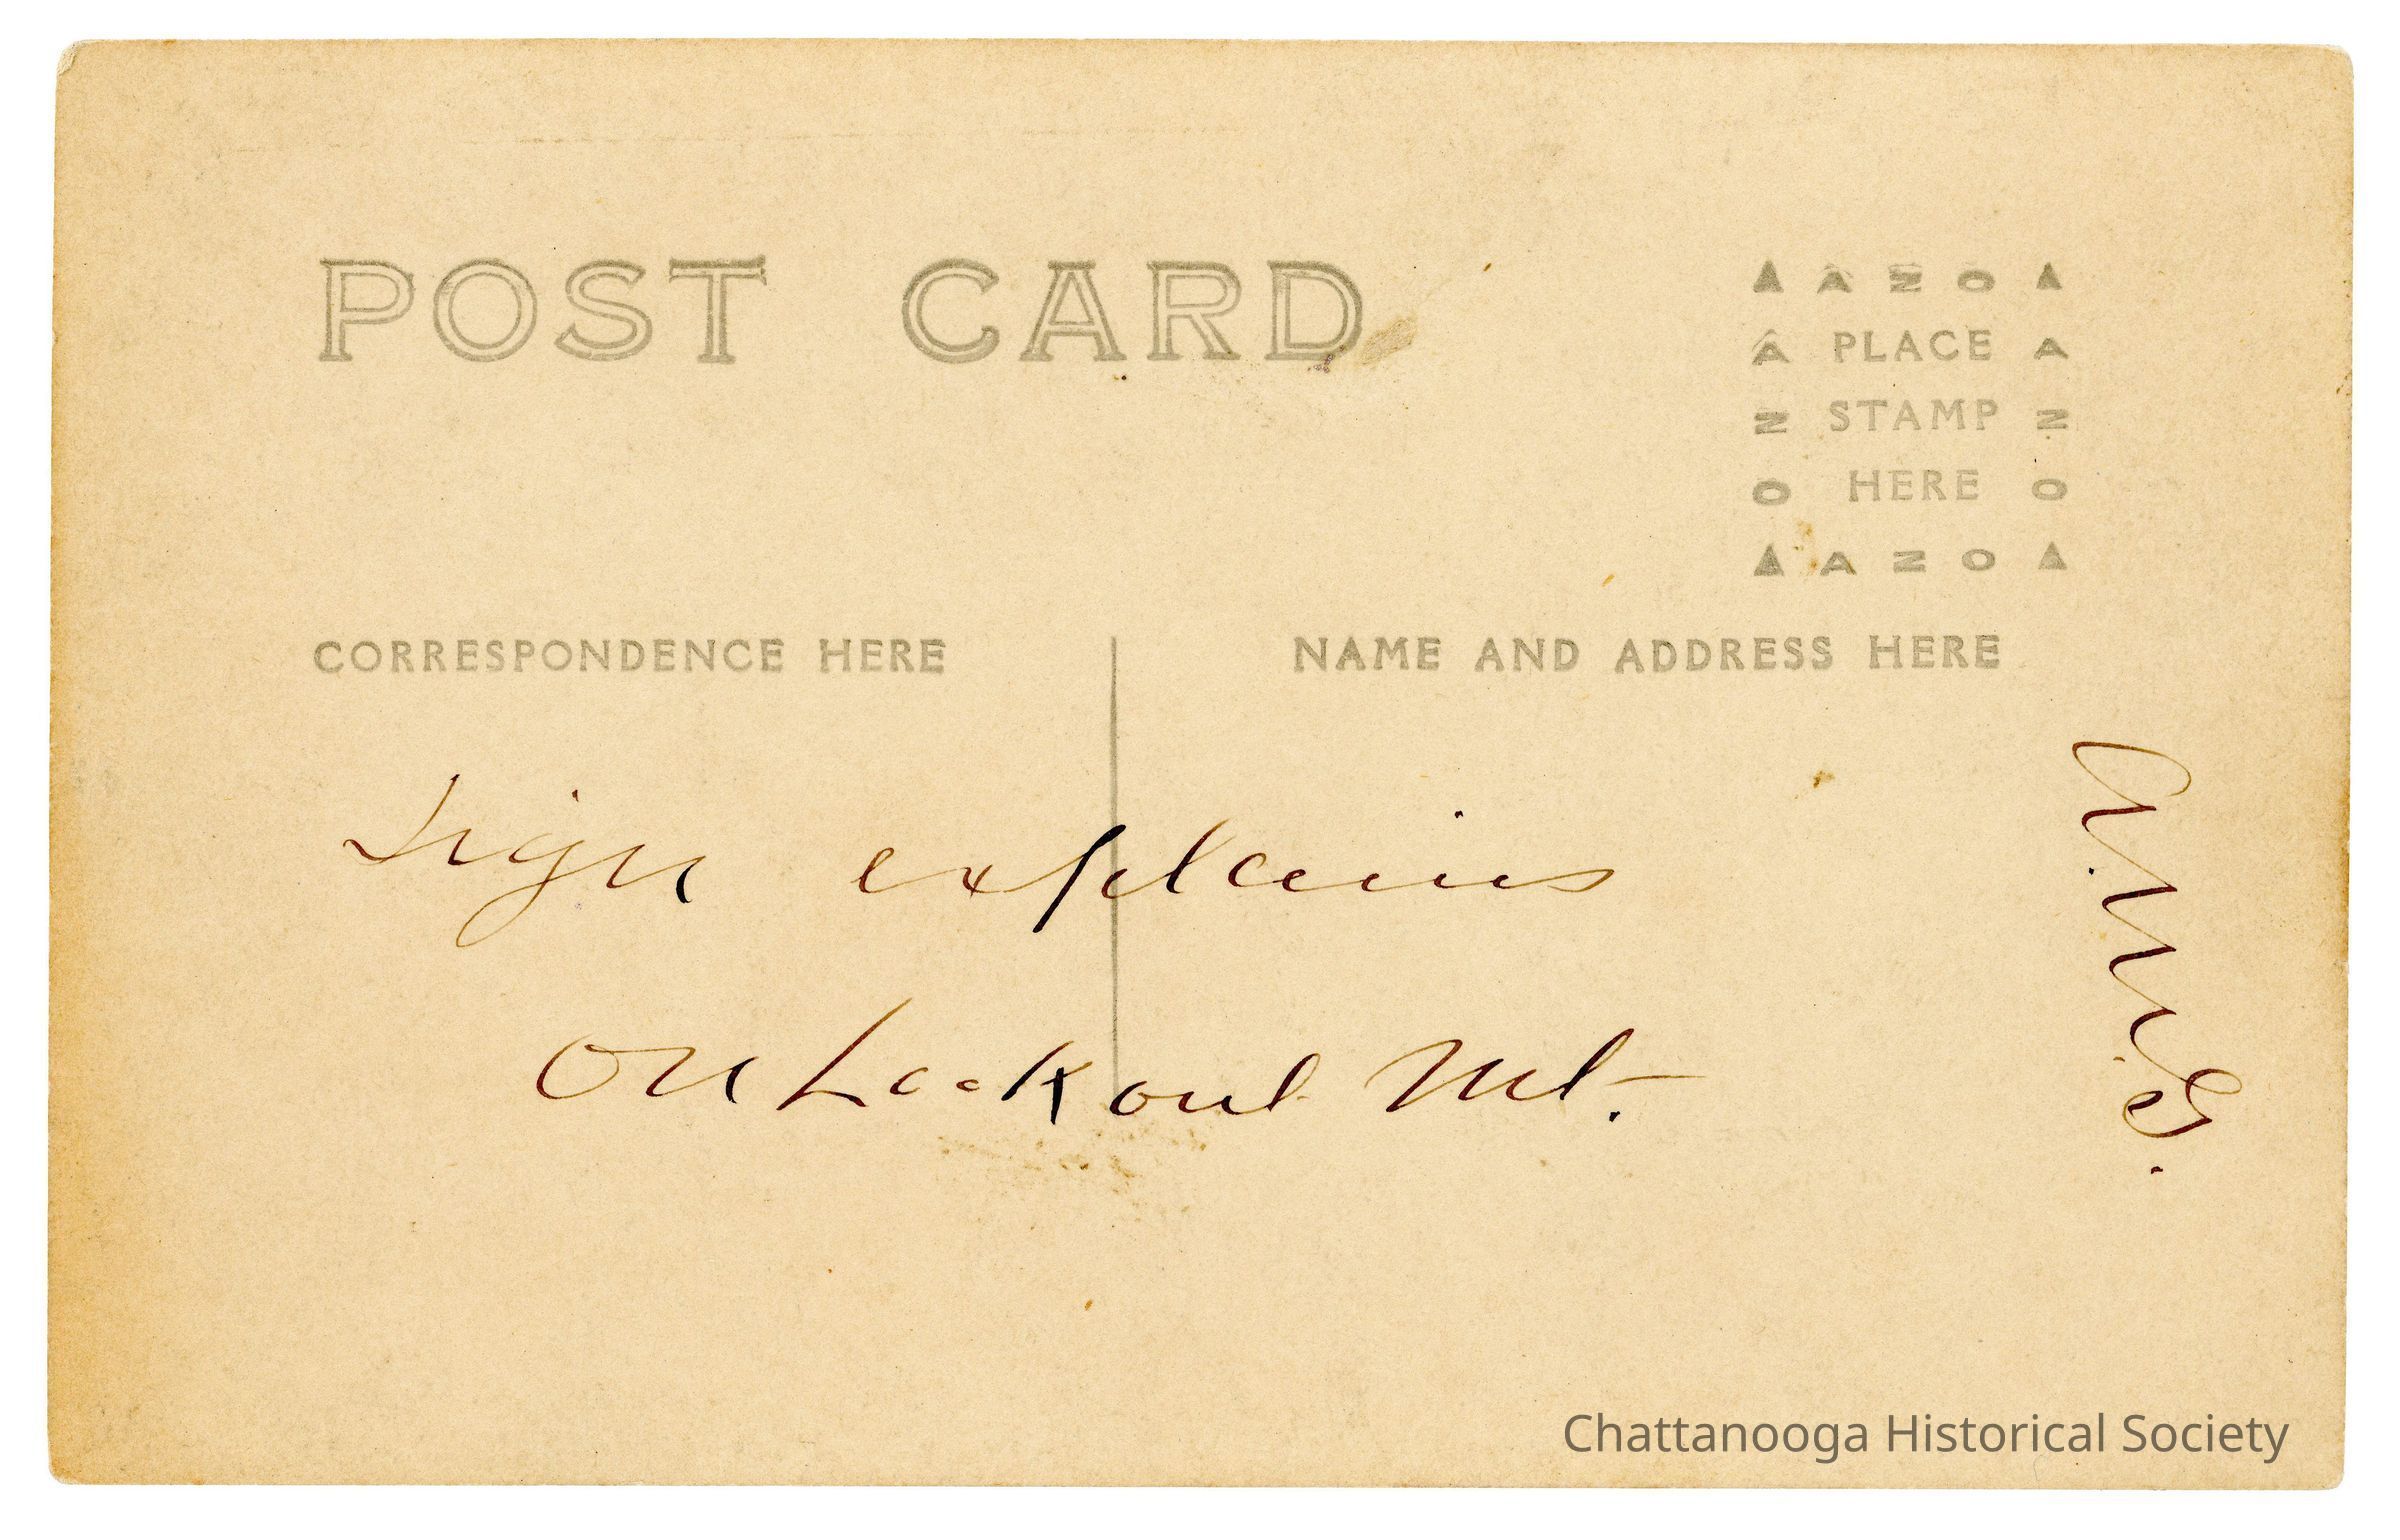 POST CARD
▲ A Z O ▲
A PLACE A
Z STAMP Z
O HERE O
▲ A Z O ▲
CORRESPONDENCE HERE
NAME AND ADDRESS HERE
Sign explains
On Lookout Mt.
Chattanooga Historical Society